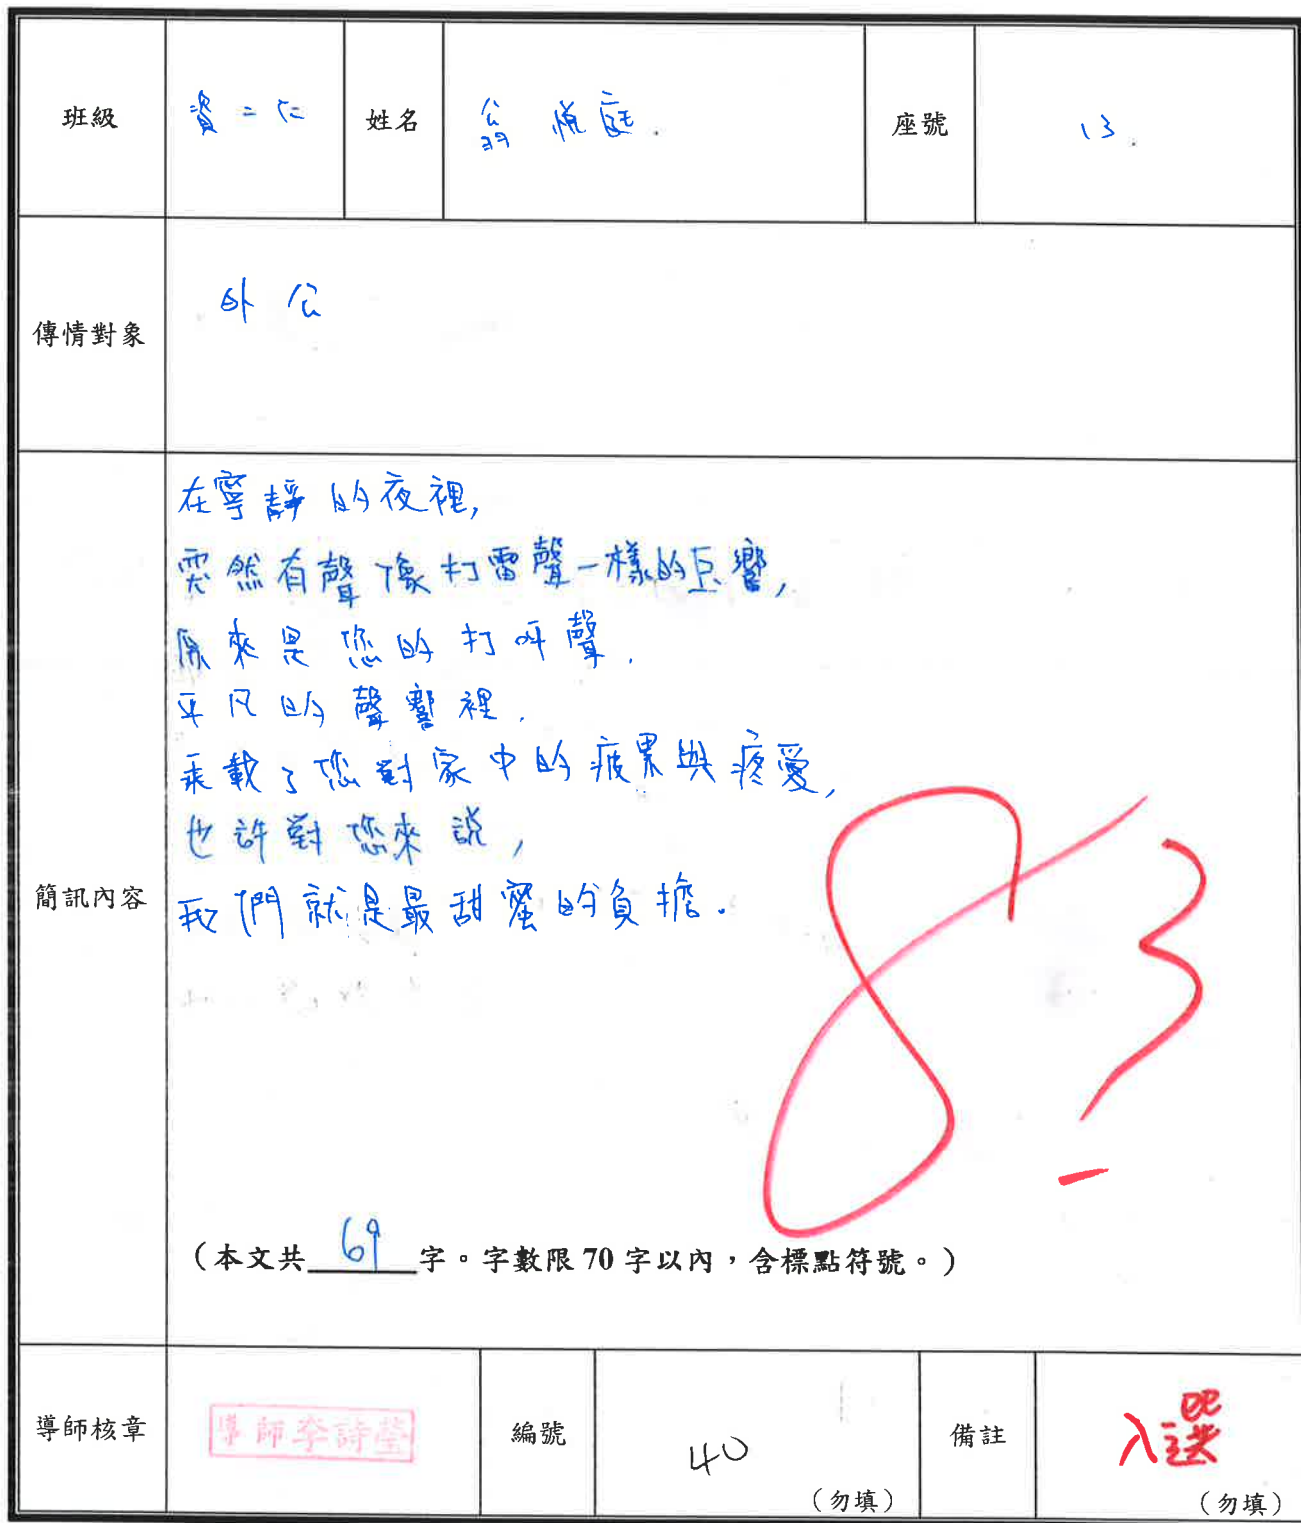 班級 資二仁 姓名 翁悅庭. 座號 13.
傳情對象 外公
簡訊內容
在寧靜的夜裡,
突然有聲像打雷聲一樣的巨響,
原來是您的打呼聲.
平凡的聲響裡.
乘載了您對家中的疲累與疼愛,
也許對您來說,
我們就是最甜蜜的負擔.
83
(本文共 69 字。字數限 70 字以內,含標點符號。)
導師核章 導師李詩瑩 編號 40 (勿填) 備註 入選 (勿填)